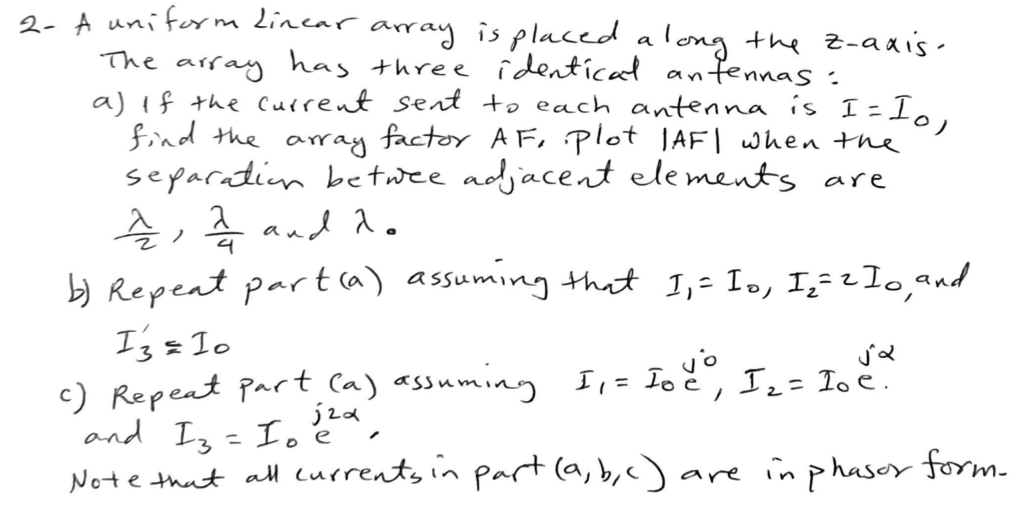 2- A uniform Linear array is placed along the z-axis.
The array has three identical antennas :
a) if the current sent to each antenna is I = I₀,
find the array factor AF. Plot |AF| when the
separation betwee adjacent elements are
λ/2, λ/4 and λ.
b) Repeat part (a) assuming that I₁ = I₀, I₂ = 2I₀, and
I₃ = I₀
c) Repeat part (a) assuming I₁ = I₀e^{j0}, I₂ = I₀e^{jα}.
and I₃ = I₀e^{j2α}.
Note that all currents in part (a, b, c) are in phasor form.